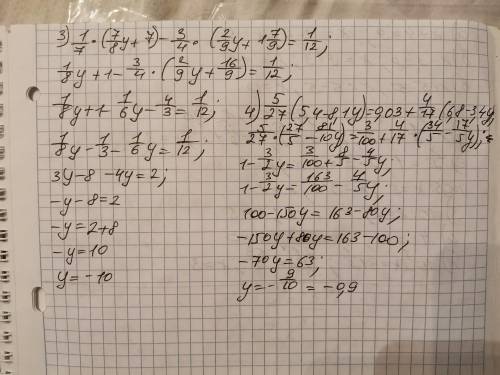 3) 1/7 · (7/8y + 7) - 3/4 · (2/9y + 1 7/9) = 1/12;
1/8y + 1 - 3/4 · (2/9y + 16/9) = 1/12;
1/8y + 1 - 1/6y - 4/3 = 1/12;
1/8y - 1/3 - 1/6y = 1/12;
3y - 8 - 4y = 2;
-y - 8 = 2
-y = 2 + 8
-y = 10
y = -10
4) 5/27 (5,4 - 8,1y) = 0,03 + 4/17 (6,8 - 3,4y)
5/27 · (27/5 - 81/10y) = 3/100 + 4/17 · (34/5 - 17/5y);
1 - 3/2y = 3/100 + 8/5 - 4/5y;
1 - 3/2y = 163/100 - 4/5y;
100 - 150y = 163 - 80y;
-150y + 80y = 163 - 100;
-70y = 63;
y = -9/10 = -0,9